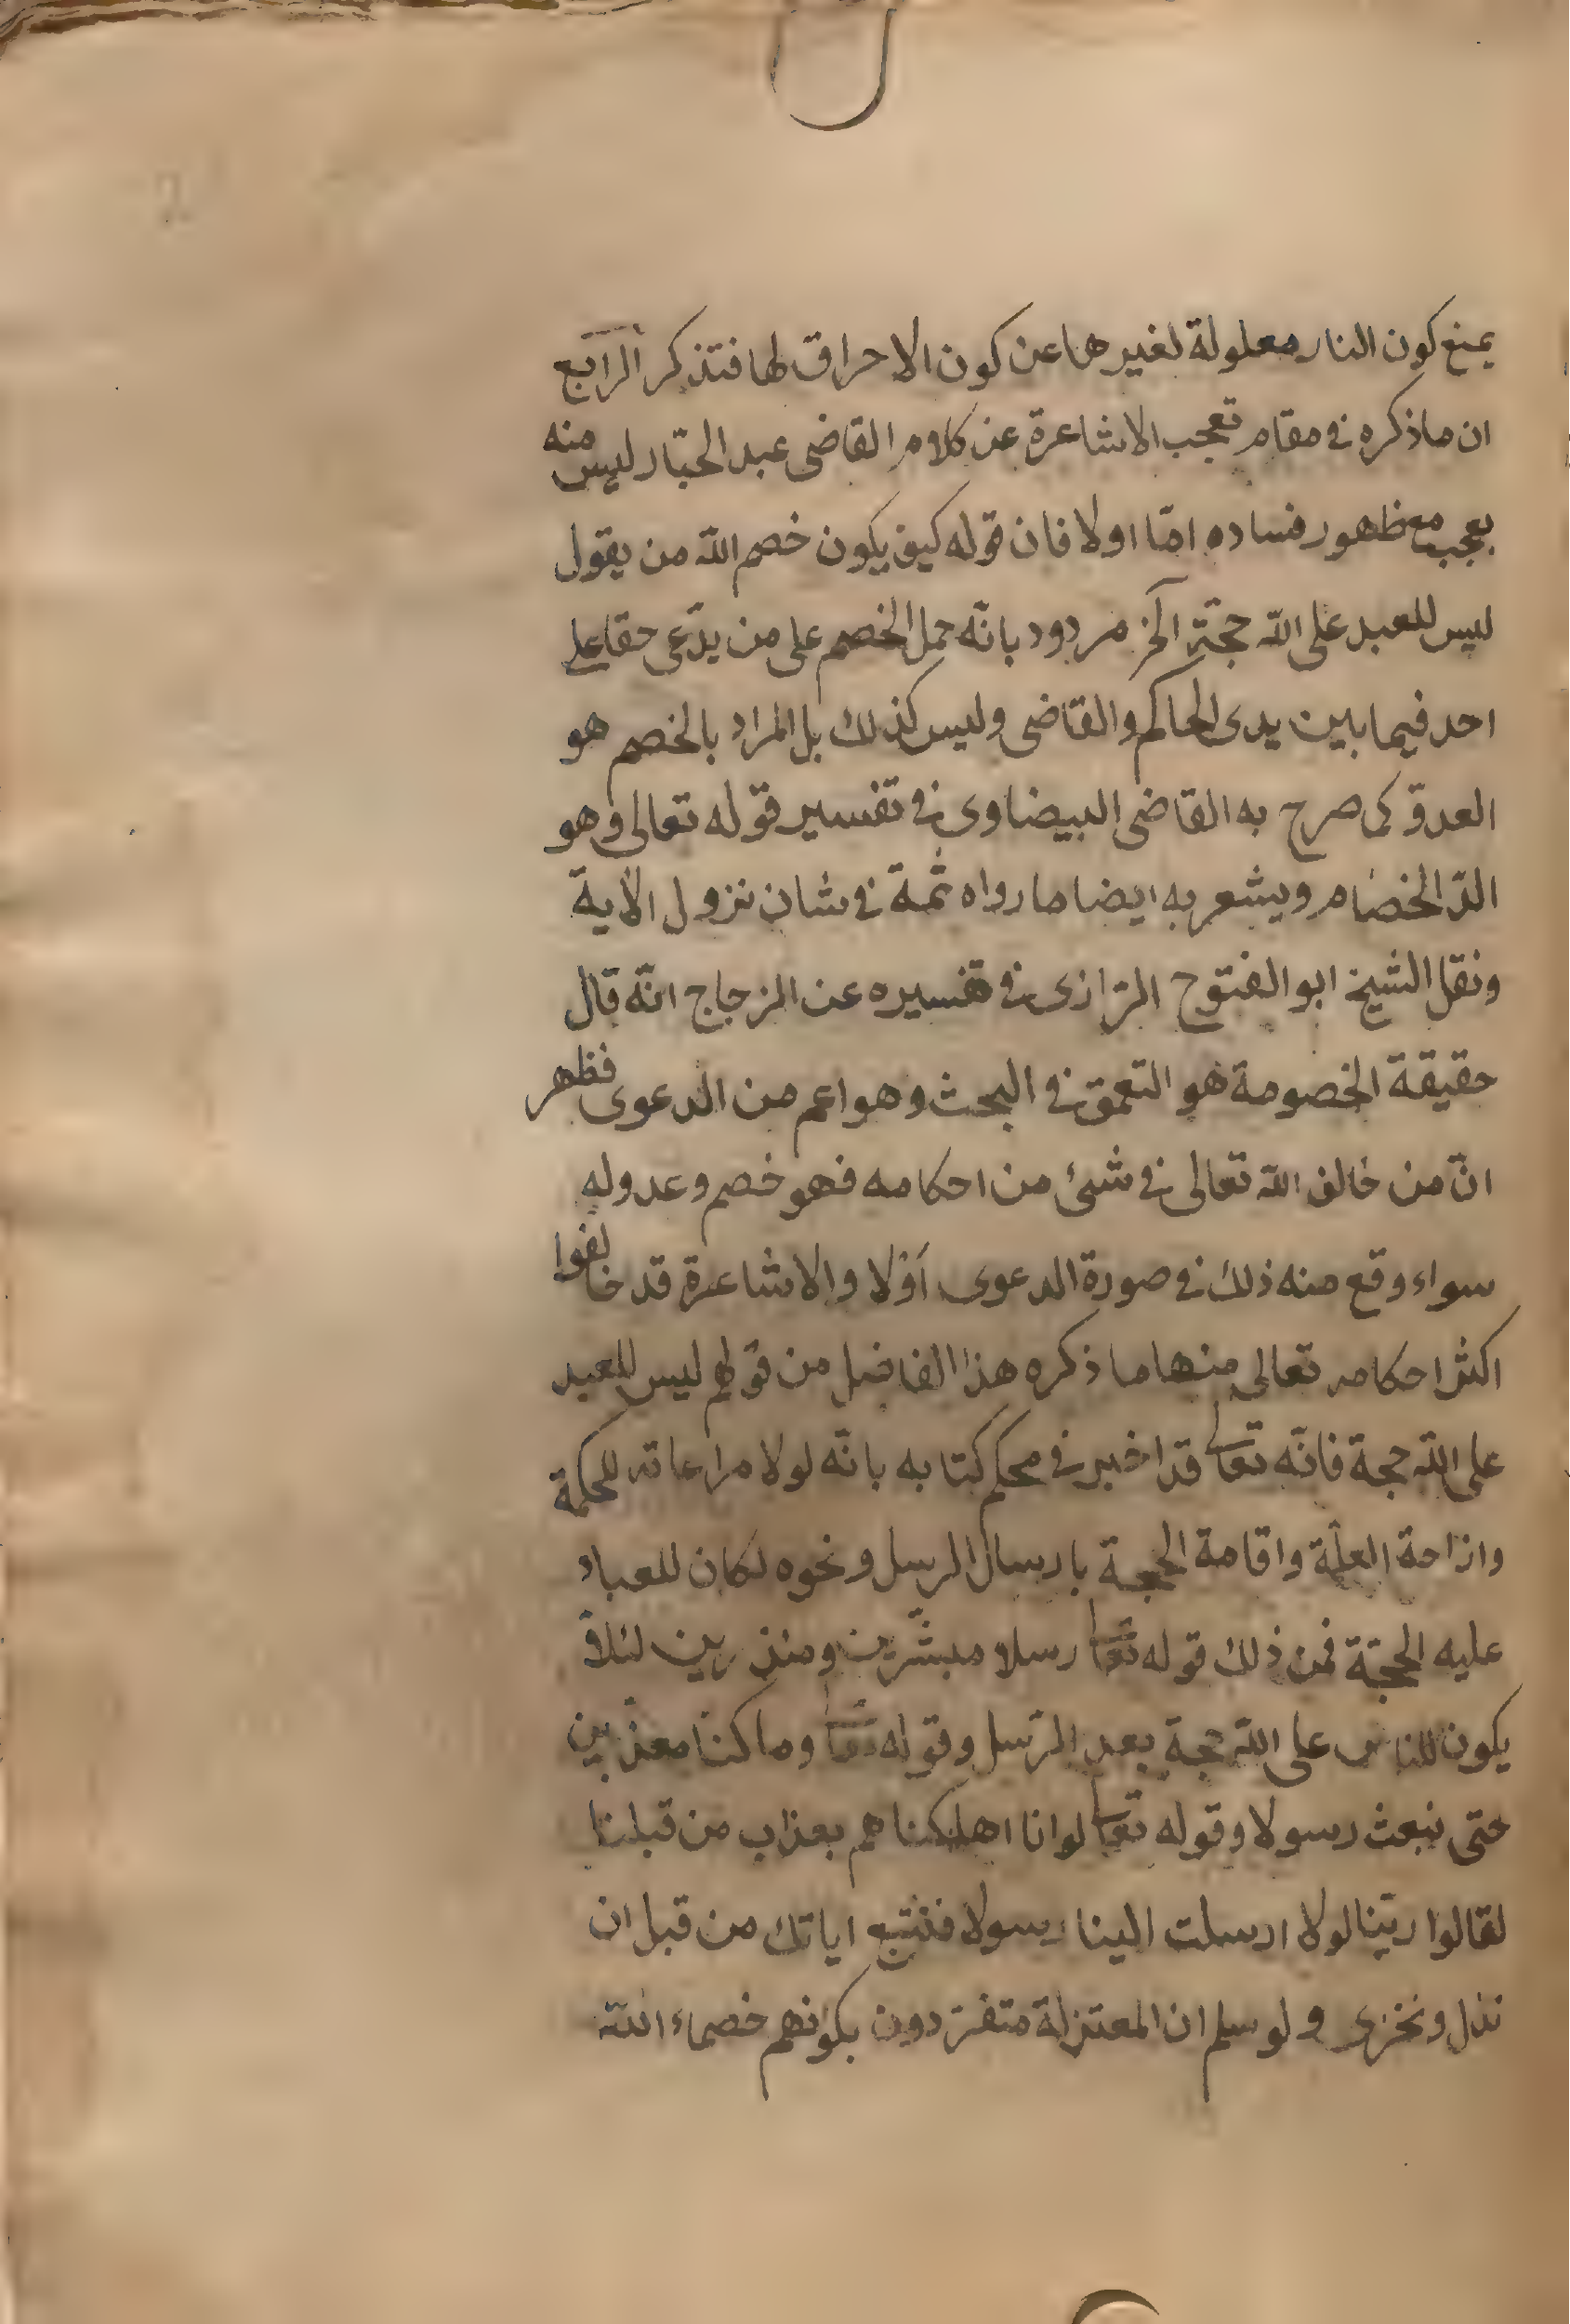 يمنع كون النار معلولة لغيرها عن كون الاحراق لها فتذكر الرابع
ان ما ذكره في مقام تعجب الاشاعرة عن كلام القاضى عبد الجبّار ليس منه
بعجب مع ظهور فساده امّا اولا فان قوله كيف يكون خصم اللّه من يقول
ليس للعبد على اللّه حجّة الخ مردود بانّه حمل الخصم على من يدّعى حقا على
احد فيما بين يدى الحاكم والقاضى وليس كذلك بل المراد بالخصم هو
العدوّ كما صرح به القاضى البيضاوى في تفسير قوله تعالى وهو
الدّ الخصام ويشعر به ايضا ما رواه ثمة في شان نزول الآية
ونقل الشيخ ابو الفتوح الرّازى في تفسيره عن الزجاج انّه قال
حقيقة الخصومة هو التعمق في البحث وهو اعم من الدعوى فظهر
انّ من خالف اللّه تعالى في شئ من احكامه فهو خصم وعدو له
سواء وقع منه ذلك في صورة الدعوى اوْلا والاشاعرة قد خالفوا
اكثر احكامه تعالى منها ما ذكره هذا الفاضل من قولهم ليس للعبد
على اللّه حجة فانّه تعالى قد اخبر في محكم كتابه بانّه لولا مراعاته للحكمة
وازاحة العلّة واقامة الحجة بارسال الرسل ونحوه لكان للعباد
عليه الحجّة فمن ذلك قوله تعا رسلا مبشّرين ومنذرين لئلّا
يكون للناس على اللّه حجة بعد الرّسل وقوله تعا وما كنّا معذّبين
حتى نبعث رسولا وقوله تعالى لو انا اهلكناهم بعذاب من قبلنا
لقالوا ربّنا لولا ارسلت الينا رسولا فنتبع اياتك من قبل ان
نذل ونخزى ولو سلم ان المعتزلة متفرّدون بكونهم خصماء اللّه